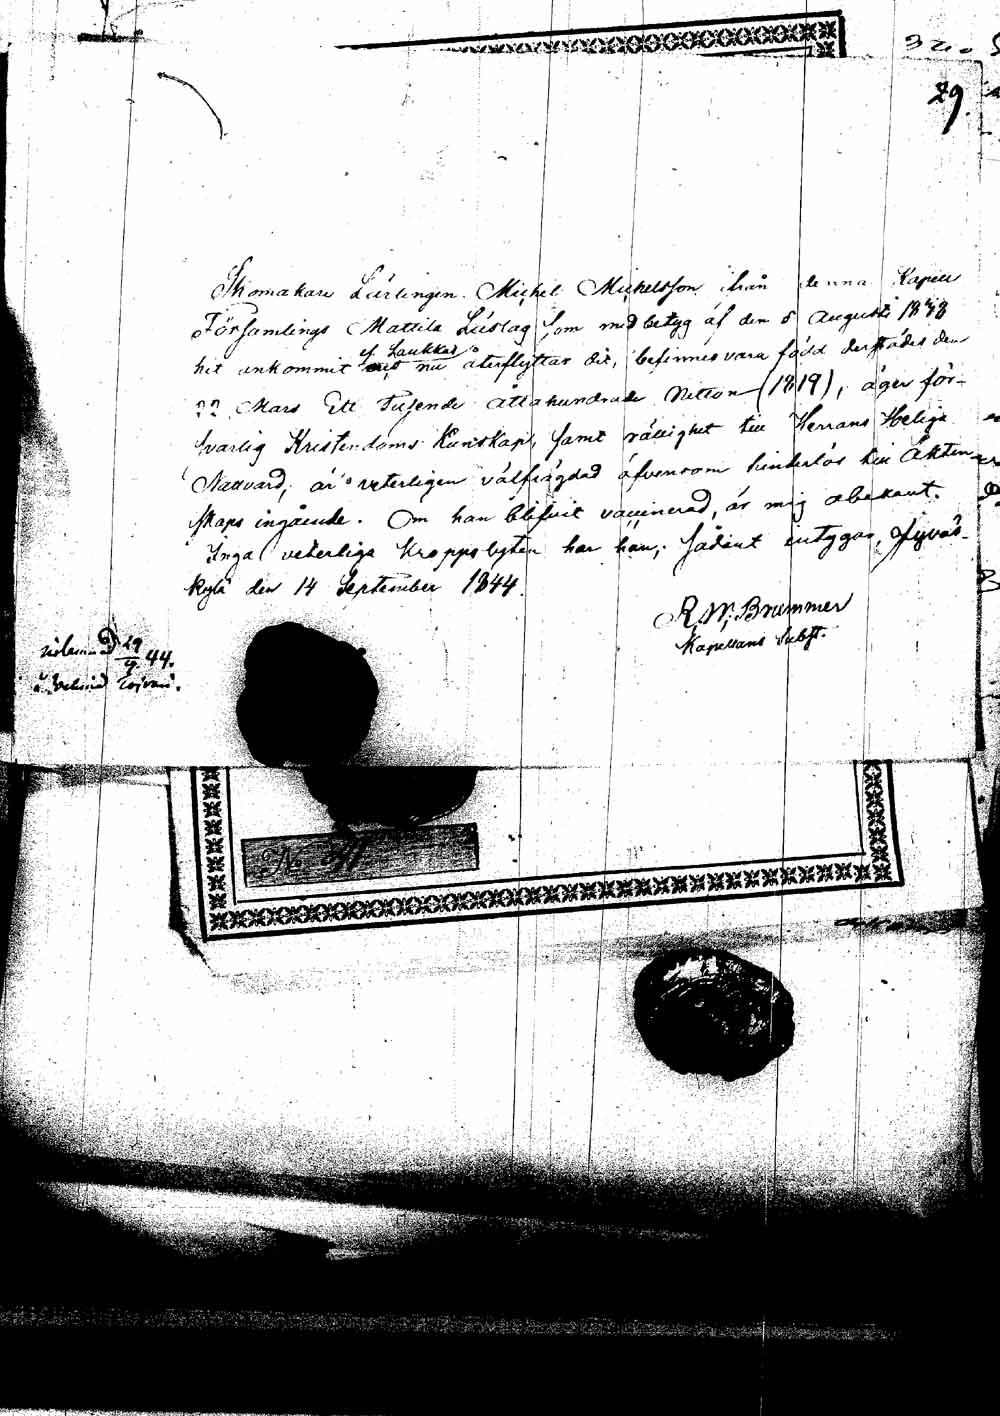 29.
Skomakare Lärlingen Michel Michelsson ifrån denna Kapell
Församlings Mattila Lüslag, som med betyg af den 8 Augusti 1838
hit ankommit
f. Laukkas
och nu återflyttar dit, befinnes vara född derstädes den
22 Mars Ett Tusende Åttahundrade Nitton (1819), äger för-
svarlig Kristendoms Kunskap, samt rättighet till Herrans Heliga
Nattvard, är veterligen välfrägdad äfvensom hinderlös till Äkten-
skaps ingående. Om han blifvit vaccinerad, är mig obekant.
Inga veterliga kroppslyten har han; sådant intygar, Jyväs-
kylä den 14 September 1844.
R. W. Brummer
Kapellans Subst.
29/9 44.
No